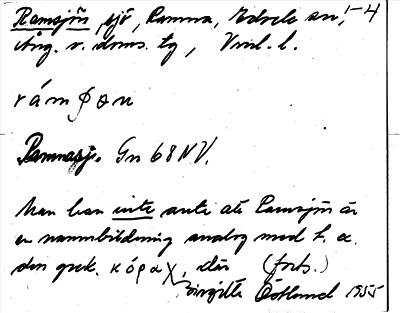 Ramsjön, sjö, Ramna, Edsele sn, 1-4
Ång. v. doms. tg, Vnl. l.
rámʃɵn
Ramnasj. Gn 68 NV.
Man kan inte anta att Ramsjön är
en namnbildning analog med t. ex.
den grek. κόραχ, där (forts.)
Birgitta Östlund 1955